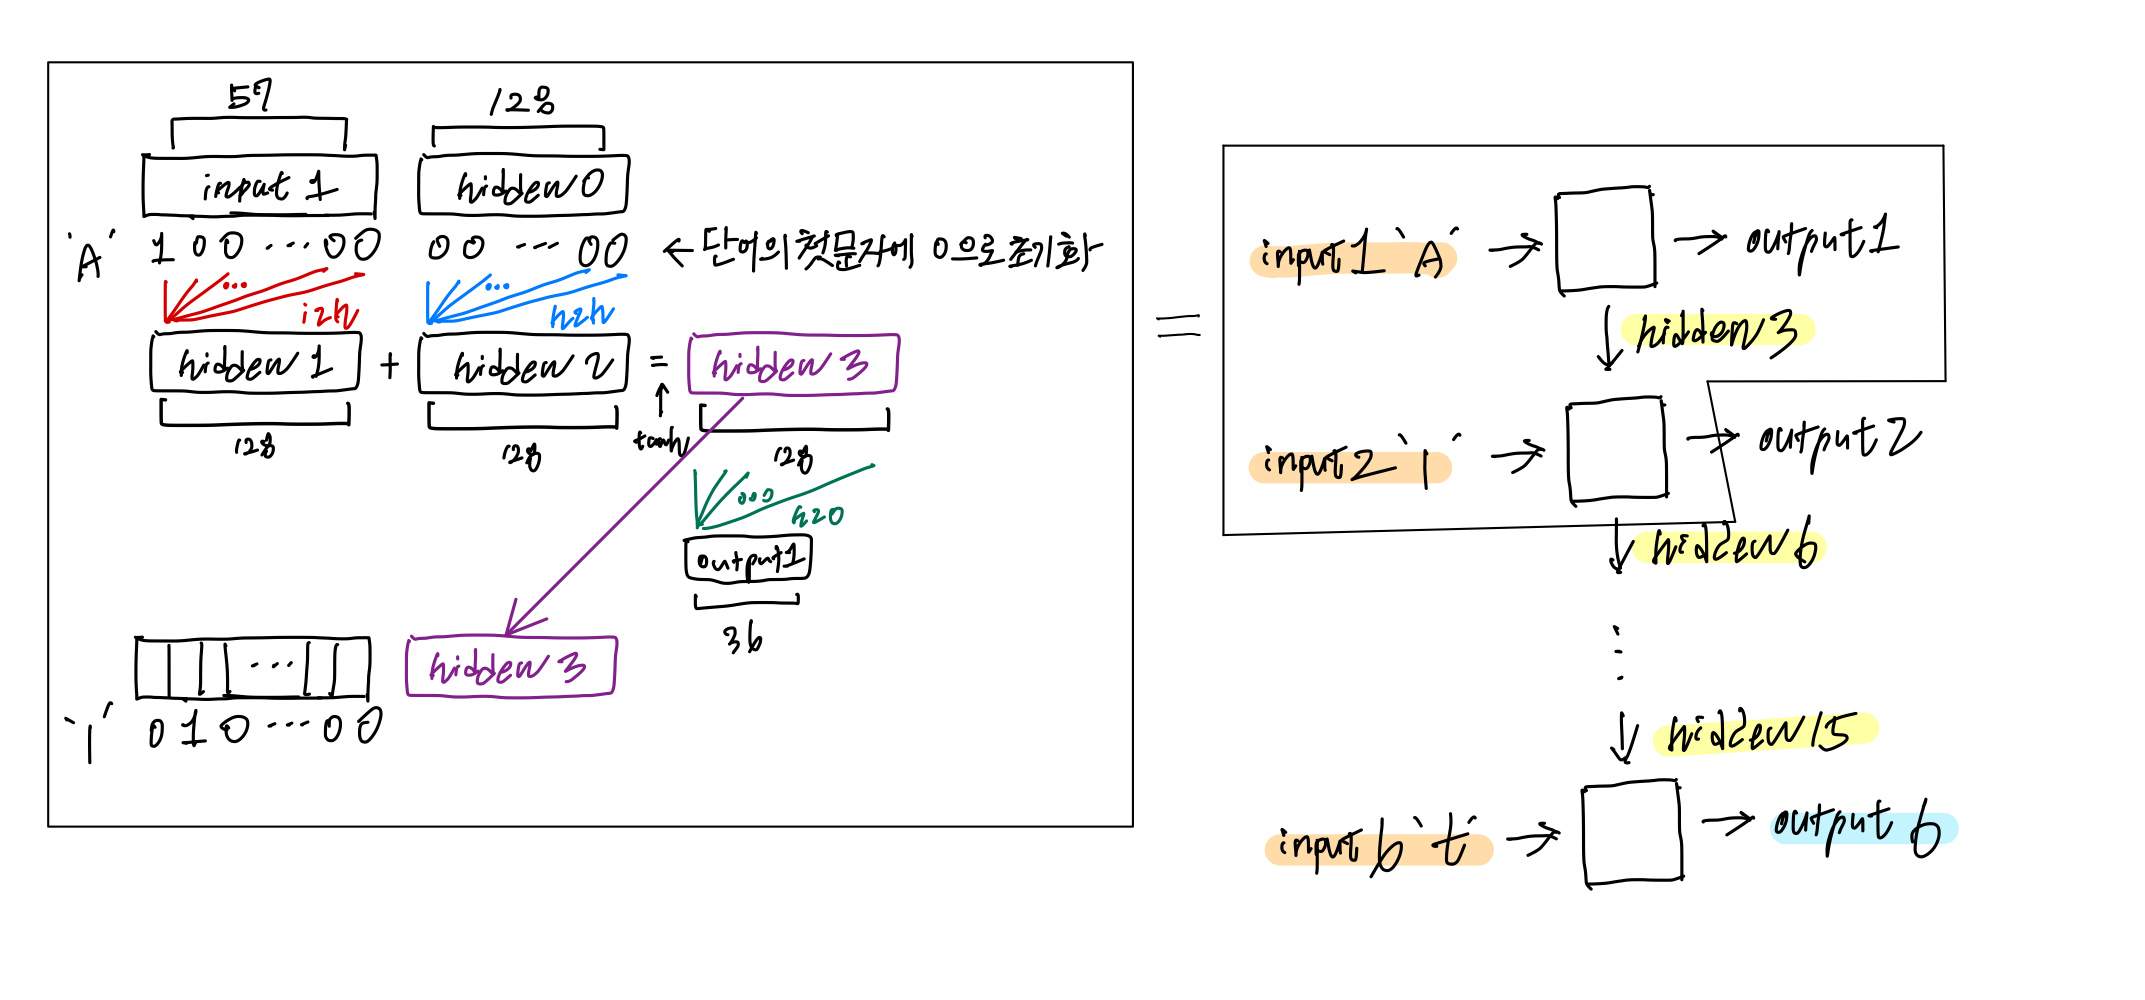 57
128
input 1
hidden 0
'A'
1 0 0 ... 0 0
0 0 ... 0 0
← 단어의 첫문자에 0으로 초기화
...
i2h
...
h2h
hidden 1
+
hidden 2
=
hidden 3
128
128
tanh
128
...
h2o
output1
36
...
hidden 3
'l'
0 1 0 ... 0 0
=
input1 'A'
output1
hidden3
input2 'l'
output2
hidden6
hidden15
input6 't'
output 6